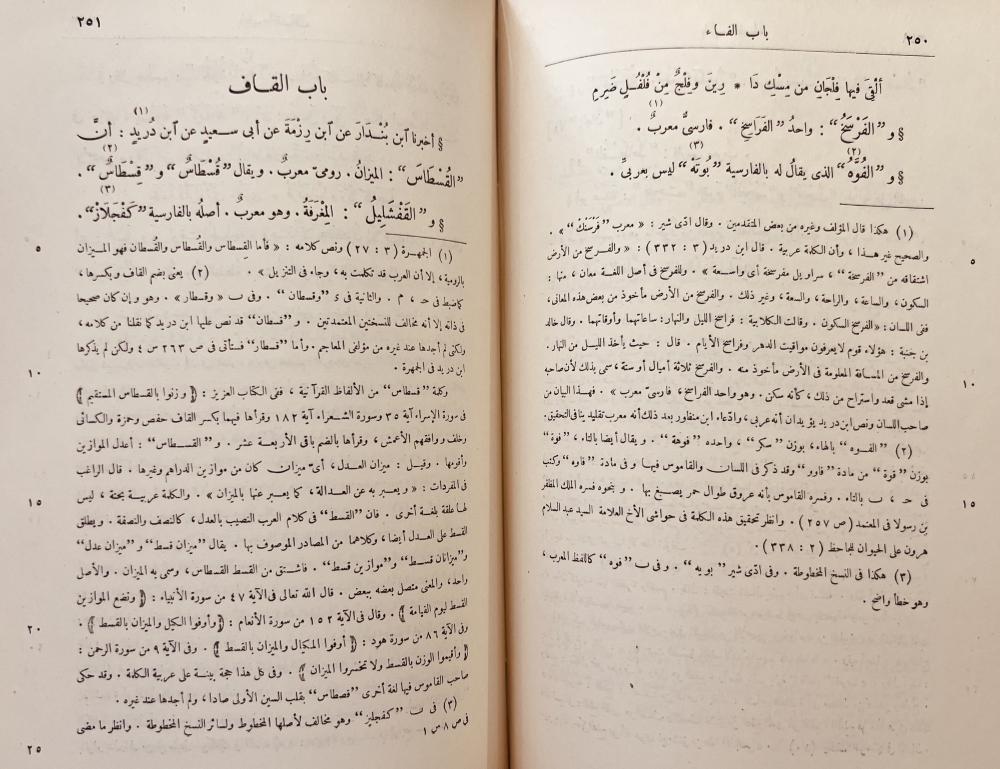 ٢٥٠
باب الفاء
أُلْقِىَ فيها فِلْجَانِ من مِسْكِ دَا * رِينَ وفِلْجٌ مِنْ فُلْفُلٍ ضَرِمِ
§ و ”الفَرْسَخُ“ (١) : واحدُ ”الفَرَاسِخِ“ . فارسىٌّ معربٌ .
§ و ”الفُوَّهُ“ (٢) الذى يقالُ له بالفارسية ”بُوتَهْ“ (٣) ليس بعربىٍّ .
(١) هكذا قال المؤلف وغيره من بعض المتقدمين . وقال ادّى شير : « معرب ”فَرْسَنْكْ“ » .
والصحيح غير هذا ، وأن الكلمة عربية . قال ابن دريد (٣ : ٣٣٢) : « والفرسخ من الأرض
٥
اشتقاقه من ”الفرسخة“ ، سراويل مفرسخة أى واسعة » . وللفرسخ فى أصل اللغة معان ، منها :
السكون ، والساعة ، والراحة ، والسعة ، وغير ذلك . والفرسخ من الأرض مأخوذ من بعض هذه المعانى ،
ففى اللسان : « الفرسخ السكون . وقالت الكلابية : فراسخ الليل والنهار : ساعاتهما وأوقاتهما . وقال خالد
بن جنبة : هؤلاء قوم لا يعرفون مواقيت الدهر وفراسخ الأيام . قال : حيث يأخذ الليل من النهار .
والفرسخ من المسافة المعلومة فى الأرض مأخوذ منه . والفرسخ ثلاثة أميال أو ستة ، سمى بذلك لأن صاحبه
١٠
إذا مشى قعد واستراح من ذلك ، كأنه سكن . وهو واحد الفراسخ ، فارسىّ معرب » . فهذا البيان من
صاحب اللسان ونص ابن دريد يؤيدان أنه عربى ، وادّعاء ابن منظور بعد ذلك أنه معرب تقليد ينافى التحقيق .
(٢) ”الفوه“ بالهاء ، بوزن ”سكر“ ، واحده ”فوهة“ . ويقال أيضا بالتاء ، ”فوة“
بوزن ”قوة“ من مادة ”فاوو“ وقد ذكر فى اللسان والقاموس فيها وفى مادة ”فاوه“ وكتب
فى حـ ، ب بالتاء . وفسره القاموس بأنه عروق طوال حمر يصبغ بها . وبنحوه فسره الملك المظفر
١٥
بن رسولا فى المعتمد (ص ٢٥٧) . وانظر تحقيق هذه الكلمة فى حواشى الأخ العلامة السيد عبد السلام
هرون على الحيوان للجاحظ (٢ : ٣٣٨) .
(٣) هكذا فى النسخ المخطوطة . وفى ادّى شير ”بويه“ . وفى ب ”فوه“ كاللفظ المعرب ،
وهو خطأ واضح .
٢٥١
باب القاف
§ أخبرنا ابن بُنْدَارَ عن ابن رِزْمَةَ عن أبى سعيدٍ عن ابن دُريدٍ (١) : أنَّ
”القُسْطَاسَ“ : الميزانُ . رومىّ معربٌ . ويقال ”قُسْطَاسٌ“ و ”قِسْطَاسٌ“ (٢) .
§ و ”القَفْشَلِيلُ“ : المِغْرَفَةُ . وهو معربٌ . أصلُه بالفارسية ”كَفْجَلازْ“ (٣) .
(١) الجمهرة (٣ : ٢٧) ونص كلامه : « فأما القِسطاس والقُسطاس والقُسطان فهو الميزان
٥
بالرومية ، إلا أن العرب قد تكلمت به ، وجاء فى التنزيل » . (٢) يعنى بضم القاف وبكسرها ،
كما ضبط فى حـ ، م . والثانية فى ى ”وقسطان“ . وفى ب « وقسطار » . وهو وإن كان صحيحا
فى ذاته إلا أنه مخالف للنسختين المعتمدتين . و ”قسطان“ قد نص عليها ابن دريد كما نقلنا من كلامه ،
ولكنى لم أجدها عند غيره من مؤلفى المعاجم . وأما ”قسطار“ فستأتى فى ص ٢٦٣ س ٤ ولكن لم يذكرها
ابن دريد فى الجمهرة .
١٠
وكلمة ”قسطاس“ من الألفاظ القرآنية ، ففى الكتاب العزيز : ﴿ وزنوا بالقسطاس المستقيم ﴾
فى سورة الإسراء آية ٣٥ وسورة الشعراء آية ١٨٢ وقرأها فيهما بكسر القاف حفص وحمزة والكسائى
وخلف ووافقهم الأعمش ، وقرأها بالضم باقى الأربعة عشر . و ”القسطاس“ : أعدل الموازين
وأقومها . وقيل : ميزان العدل ، أىّ ميزان كان من موازين الدراهم وغيرها . قال الراغب
فى المفردات : « ويعبر به عن العدالة ، كما يعبر عنها بالميزان » . والكلمة عربية بحتة ، ليس
١٥
لها علاقة بلغة أخرى . فان ”القسط“ فى كلام العرب النصيب بالعدل ، كالنصف والنصفة . ويطلق
القسط على العدل أيضا ، وكلاهما من المصادر الموصوف بها . يقال ”ميزان قسط“ و ”ميزان عدل“
و ”ميزانان قسط“ و ”موازين قسط“ . فاشتق من القسط القسطاس ، وسمى به الميزان . والأصل
واحد ، والمعنى متصل بعضه ببعض . قال الله تعالى فى الآية ٤٧ من سورة الأنبياء : ﴿ ونضع الموازين
القسط ليوم القيامة ﴾ . وقال فى الآية ١٥٢ من سورة الأنعام : ﴿ وأوفوا الكيل والميزان بالقسط ﴾ .
٢٠
وفى الآية ٨٦ من سورة هود : ﴿ أوفوا المكيال والميزان بالقسط ﴾ . وفى الآية ٩ من سورة الرحمن :
﴿ وأقيموا الوزن بالقسط ولا تخسروا الميزان ﴾ . وفى كل هذا حجة بينة على عربية الكلمة . وقد حكى
صاحب القاموس فيها لغة أخرى ”قصطاس“ بقلب السين الأولى صادا ، ولم أجدها عند غيره .
(٣) فى ب ”كفجليز“ وهو مخالف لأصلها المخطوط ولسائر النسخ المخطوطة . وانظر ما مضى
فى ص ٨ س ١
٢٥